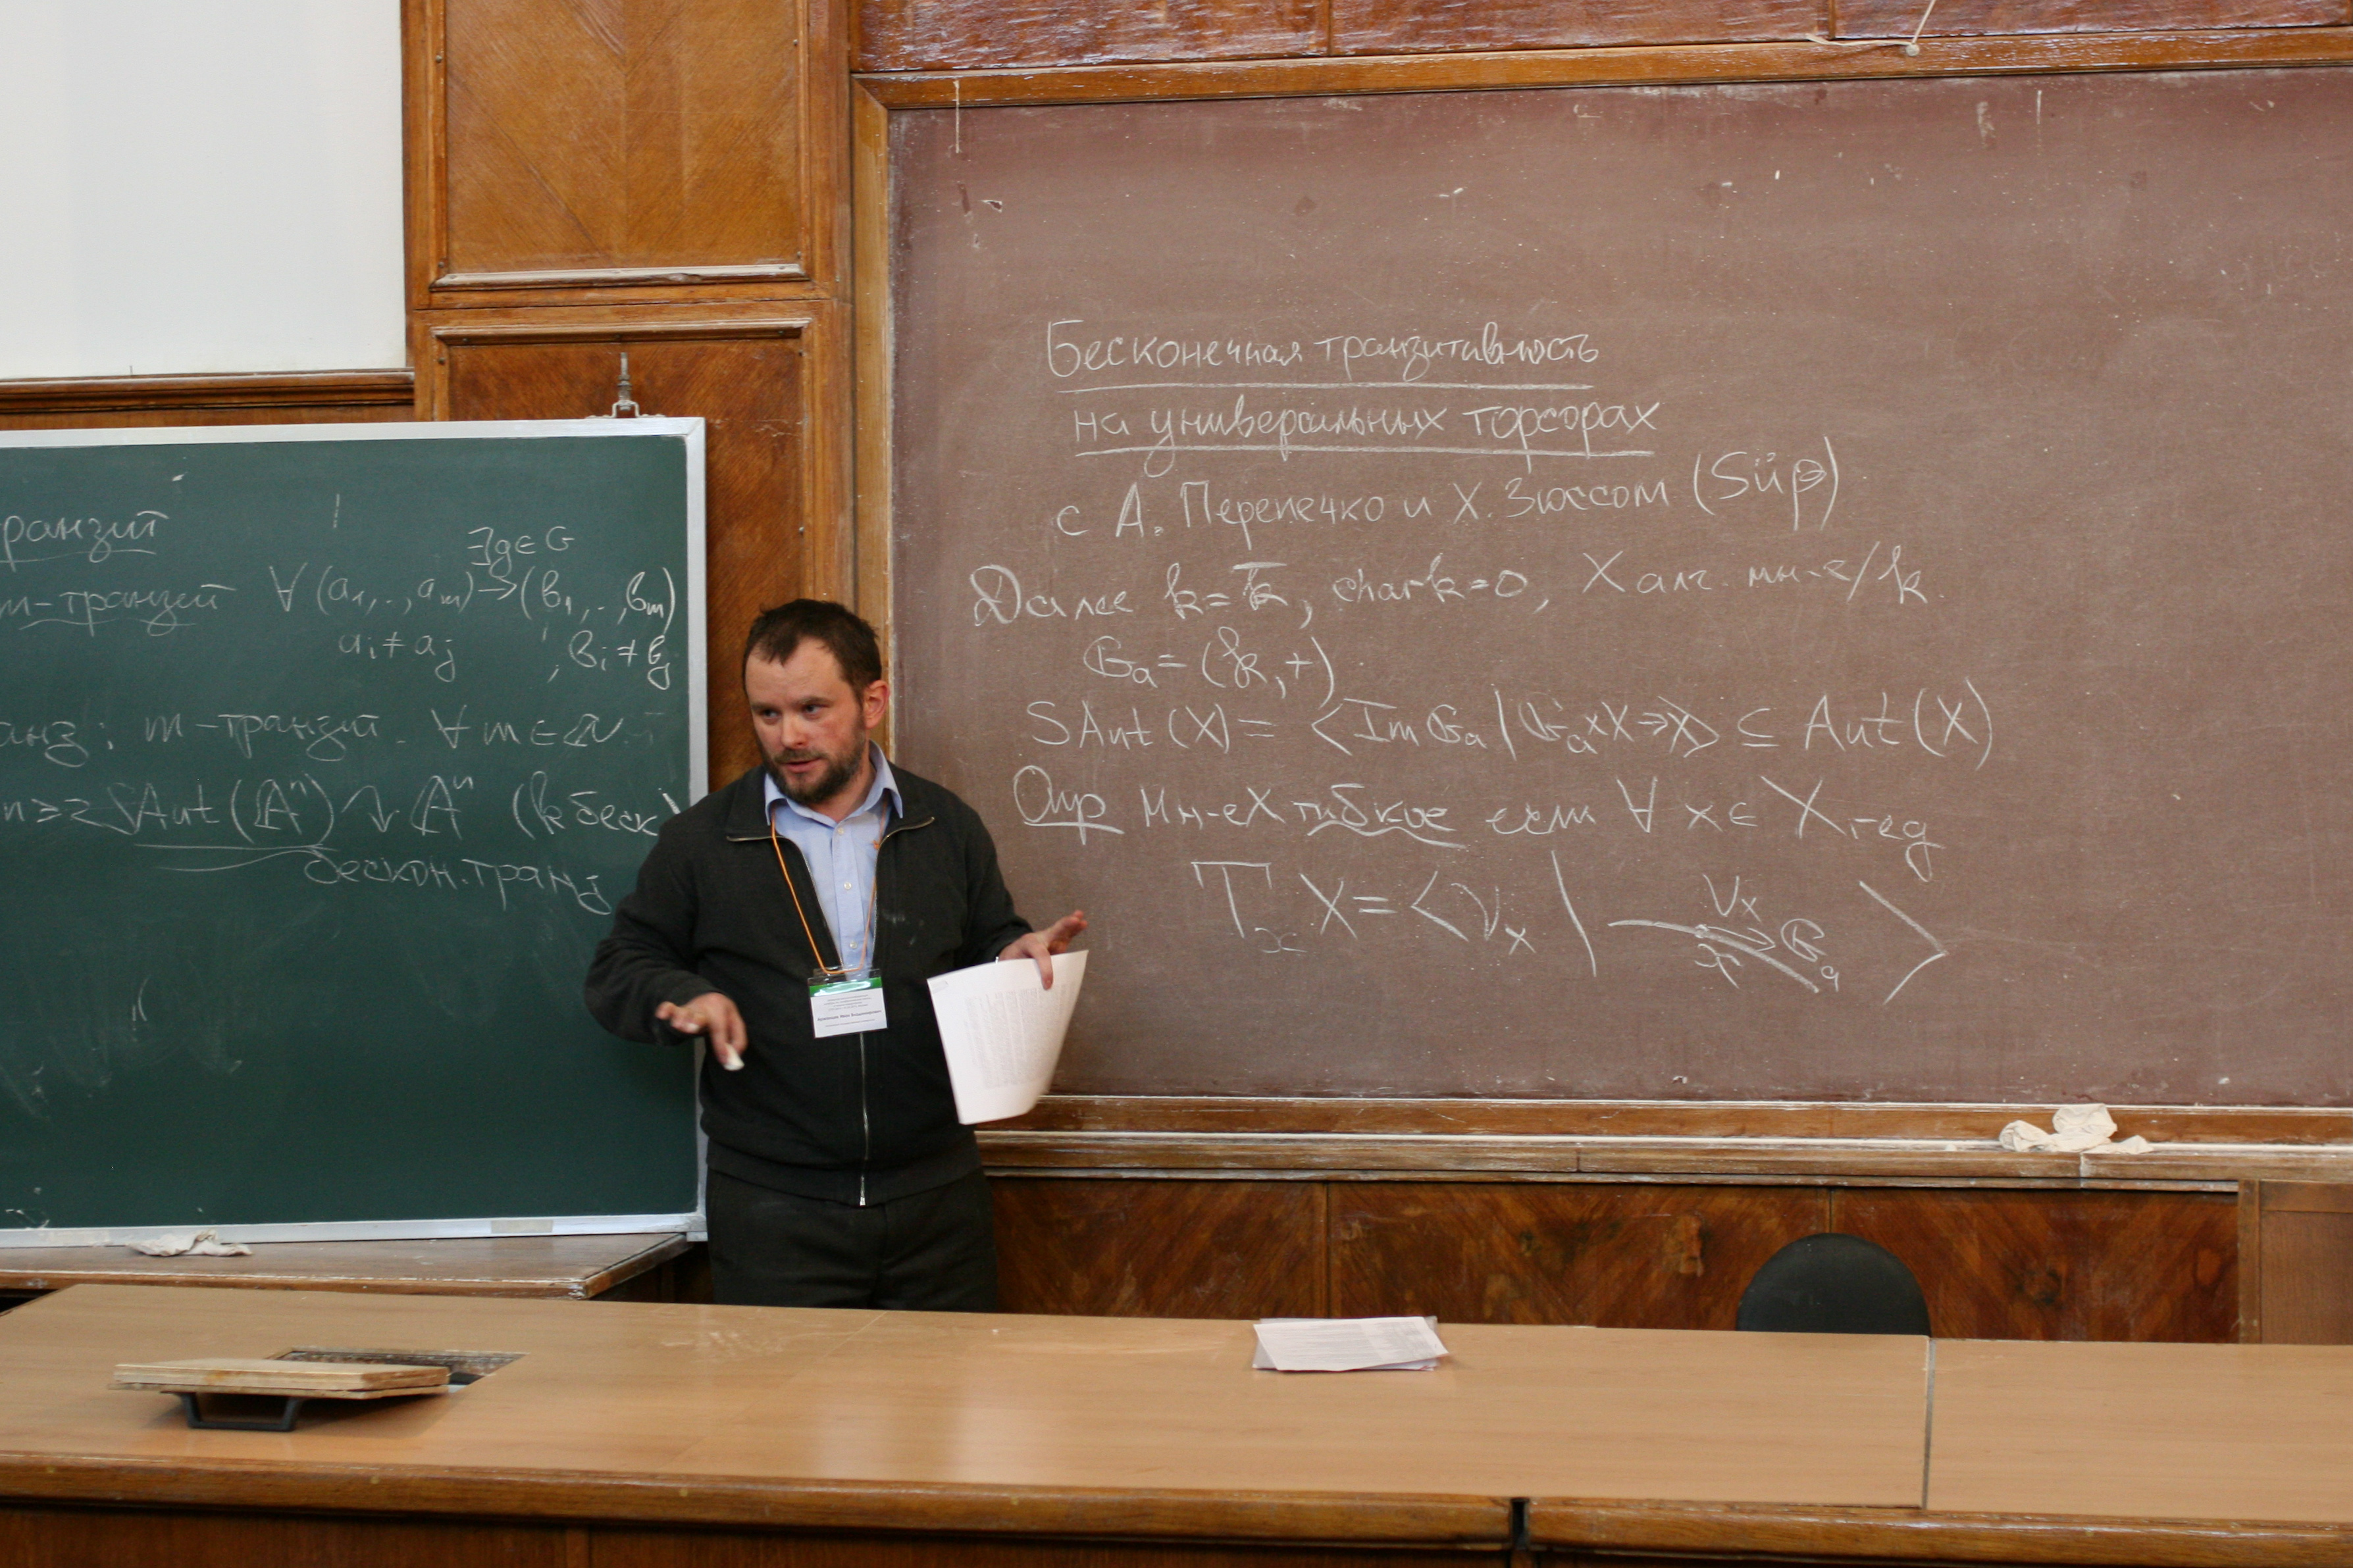 транзит
∃g∈G
m-транзит ∀(a₁,..,aₘ)→(b₁,..,bₘ)
aᵢ≠aⱼ , bᵢ≠bⱼ
анз: m-транзит. ∀m∈ℕ
n≥2 SAut(𝔸ⁿ) ↷ 𝔸ⁿ (k беск)
бескон.транз
Бесконечная транзитивность
на универсальных торсорах
с А. Перепечко и Х. Зюссом (Süß)
Далее k=k̄, char k=0, X алг. мн-е/k
𝔾ₐ=(k,+)
SAut(X)=⟨Im 𝔾ₐ | 𝔾ₐ×X→X⟩ ⊆ Aut(X)
Опр Мн-е X гибкое если ∀ x∈X_reg
TₓX=⟨vₓ | vₓ x 𝔾ₐ⟩